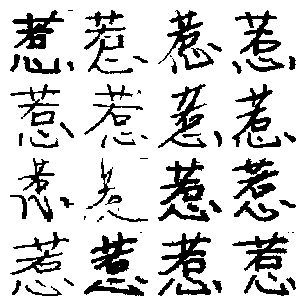 惹惹惹惹
惹惹惹惹
惹惹惹惹
惹惹惹惹